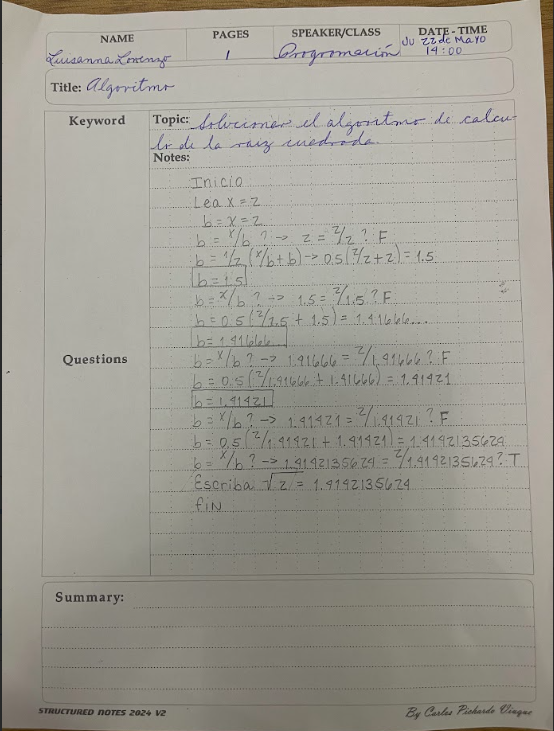 NAME PAGES SPEAKER/CLASS DATE - TIME
Luisanna Lorenzo 1 Programación Ju 22 de Mayo
14:00
Title: Algoritmo
Keyword Topic: Solucionar el algoritmo de calcu-
lo de la raiz cuadrada.
Notes:
Inicio
Lea x = 2
b = x = 2
b = x/b ? -> 2 = 2/2 ? F
b = 1/2 (x/b + b) -> 0.5 (2/2 + 2) = 1.5
b = 1.5
b = x/b ? -> 1.5 = 2/1.5 ? F
b = 0.5 (2/1.5 + 1.5) = 1.41666...
b = 1.41666...
Questions b = x/b ? -> 1.41666 = 2/1.41666 ? F
b = 0.5 (2/1.41666 + 1.41666) = 1.41421
b = 1.41421
b = x/b ? -> 1.41421 = 2/1.41421 ? F
b = 0.5 (2/1.41421 + 1.41421) = 1.4142135624
b = x/b ? -> 1.4142135624 = 2/1.4142135624 ? T
Escriba √2 = 1.4142135624
FIN
Summary:
STRUCTURED NOTES 2024 V2 By Carlos Pichardo Viuque